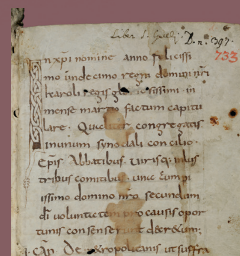 Liber S. Galli
D. n. 397.
733
In xpi nomine anno felicissi
mo undecimo regni domni nri
karoli regis gloriosissimi in
mense martio factum capitu
lare. Qualiter congregatis
in unum sinodali concilio
Epis Abbatibus virisque inlus
tribus comitibus una cum pi
issimo domino nro secundum
di voluntatem pro causis opor
tunis consenserunt decretum
De metropolitanis ut suffra